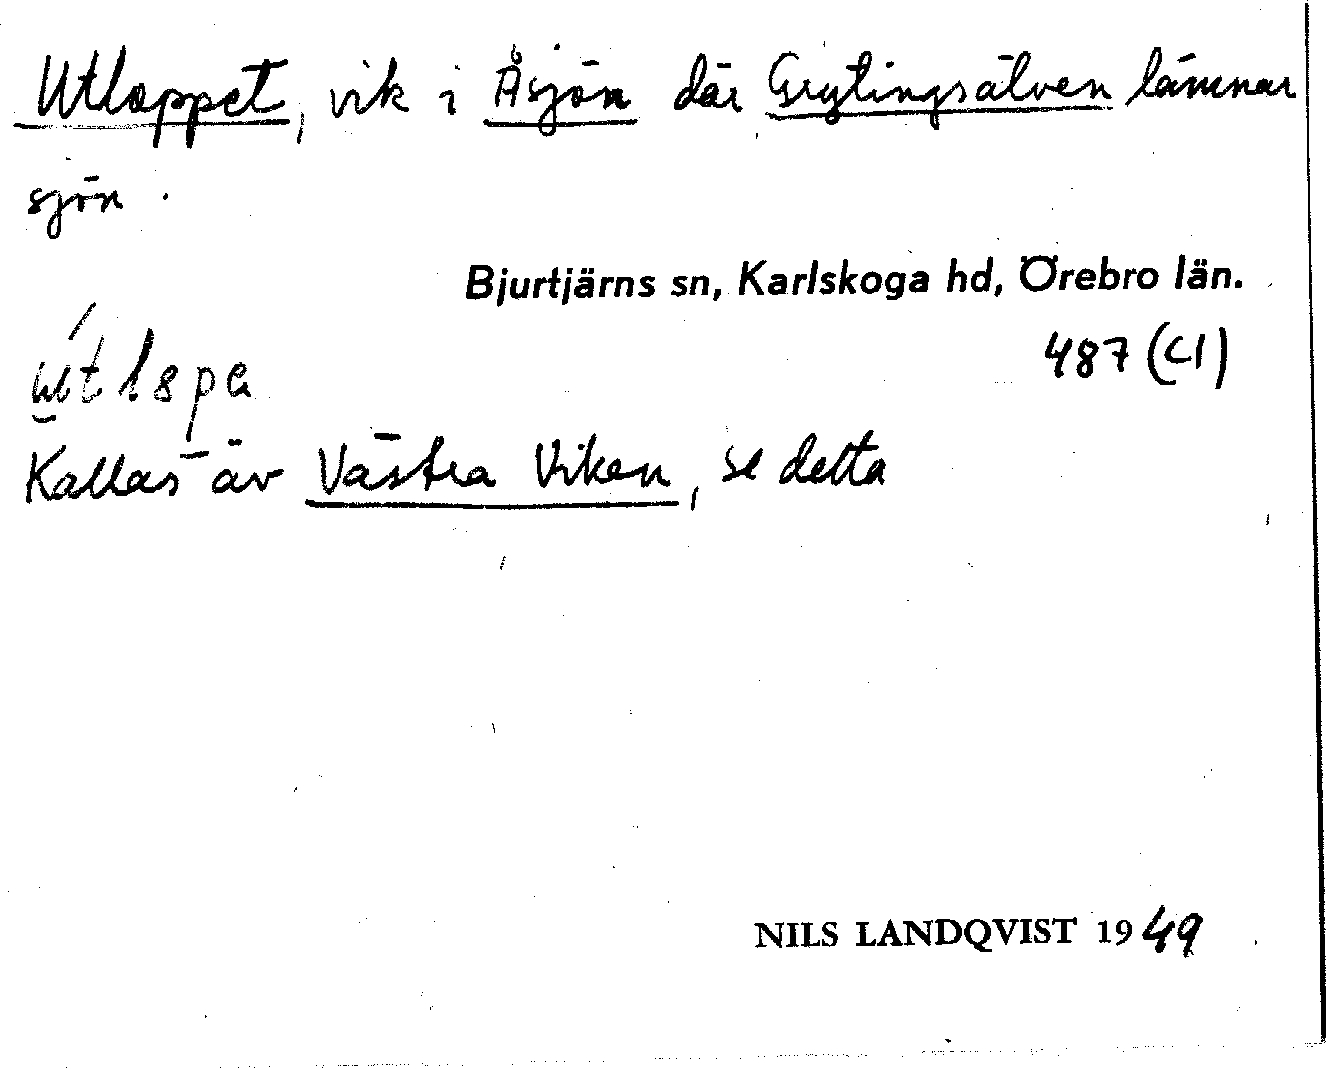 Utloppet, vik i Åsjön där Grytingsälven lämnar
sjön.
Bjurtjärns sn, Karlskoga hd, Örebro län.
487 (C1)
Kallas äv Västra Viken, se detta
NILS LANDQVIST 1949